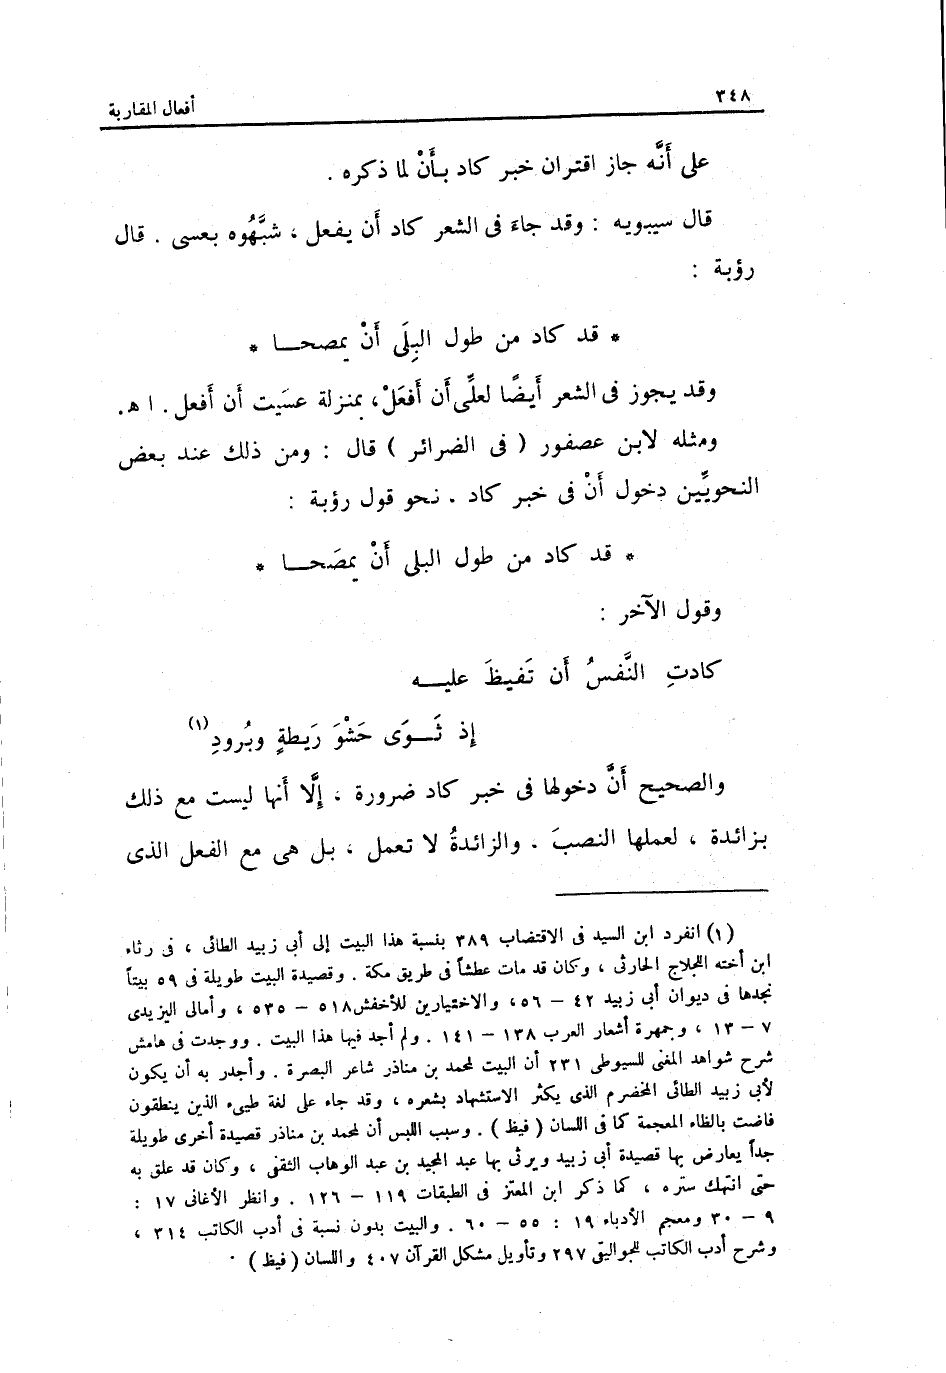 ٣٤٨
أفعال المقاربة
على أَنَّه جاز اقتران خبر كاد بأَنْ لما ذكره .
قال سيبويه : وقد جاءَ فى الشعر كاد أَن يفعل ، شبَّهُوه بعسى . قال
رؤبة :
* قد كاد من طول البِلَى أَنْ يمصحـــا *
وقد يجوز فى الشعر أَيضًا لعلِّى أَن أَفعَلْ، بمنزلة عسَيت أن أَفعل. ا ه.
ومثله لابن عصفور ( فى الضرائر ) قال : ومن ذلك عند بعض
النحويِّين دخول أَنْ فى خبر كاد . نحو قول رؤبة :
* قد كاد من طول البلى أَنْ يمصَحـــا *
وقول الآخر :
كادتِ النَّفسُ أَن تَفيظَ عليـــه
إذ ثَـــوَى حَشْوَ رَيطةٍ وبُرودِ(١)
والصحيح أَنَّ دخولها فى خبر كاد ضرورة ، إلَّا أَنها ليست مع ذلك
بزائدة ، لعملها النصبَ . والزائدةُ لا تعمل ، بل هى مع الفعل الذى
(١) انفرد ابن السيد فى الاقتضاب ٣٨٩ بنسبة هذا البيت إلى أبى زبيد الطائى ، فى رثاء
ابن أخته اللجلاج الحارثى ، وكان قد مات عطشاً فى طريق مكة . وقصيدة البيت طويلة فى ٥٩ بيتاً
نجدها فى ديوان أبى زبيد ٤٢ – ٥٦، والاختيارين للأخفش ٥١٨ – ٥٣٥ ، وأمالى اليزيدى
٧ – ١٣ ، وجمهرة أشعار العرب ١٣٨ – ١٤١ . ولم أجد فيها هذا البيت . ووجدت فى هامش
شرح شواهد المغنى للسيوطى ٢٣١ أن البيت لمحمد بن مناذر شاعر البصرة . وأجدر به أن يكون
لأبى زبيد الطائى المخضرم الذى يكثر الاستشهاد بشعره ، وقد جاء على لغة طيىء الذين ينطقون
فاضت بالظاء المعجمة كما فى اللسان ( فيظ ) . وسبب اللبس أن لمحمد بن مناذر قصيدة أخرى طويلة
جداً يعارض بها قصيدة أبى زبيد ويرثى بها عبد المجيد بن عبد الوهاب الثقفى ، وكان قد علق به
حتى انتهك ستره ، كما ذكر ابن المعتز فى الطبقات ١١٩ – ١٢٦ . وانظر الأغانى ١٧ :
٩ – ٣٠ ومعجم الأدباء ١٩ : ٥٥ – ٦٠ . والبيت بدون نسبة فى أدب الكاتب ٣١٤ ،
وشرح أدب الكاتب للجواليقى ٢٩٧ وتأويل مشكل القرآن ٤٠٧ واللسان ( فيظ ) .